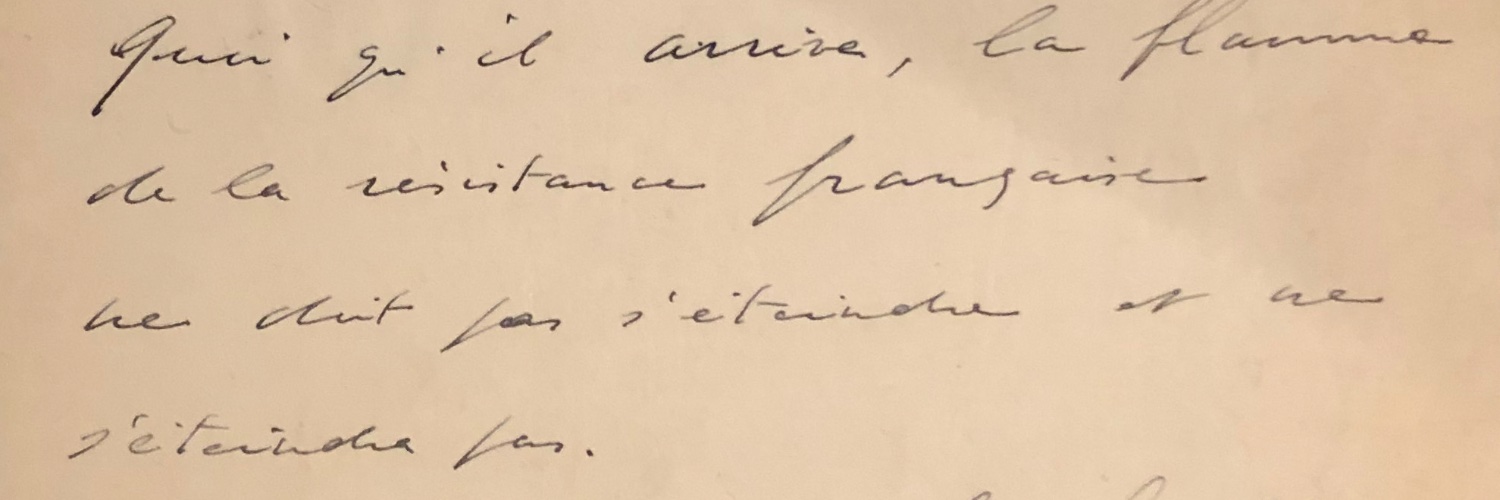 Quoi qu'il arrive, la flamme
de la résistance française
ne doit pas s'éteindre et ne
s'éteindra pas.